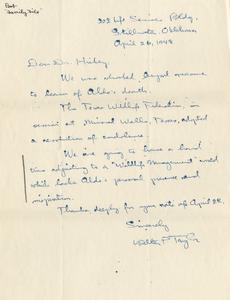 Life Science Bldg.
Stillwater Oklahoma
April 26, 1948
Dear Dr. Hickey,
We were shocked beyond measure
to learn of Aldo's death.
The Texas Wildlife Federation, in
session at Mineral Wells, Texas, adopted
a resolution of condolence.
We are going to have a hard
time adjusting to a "Wildlife Management" world
which lacks Aldo's personal presence and
inspiration.
Thanks deeply for your note of April 22.
Sincerely
Walter P. Taylor